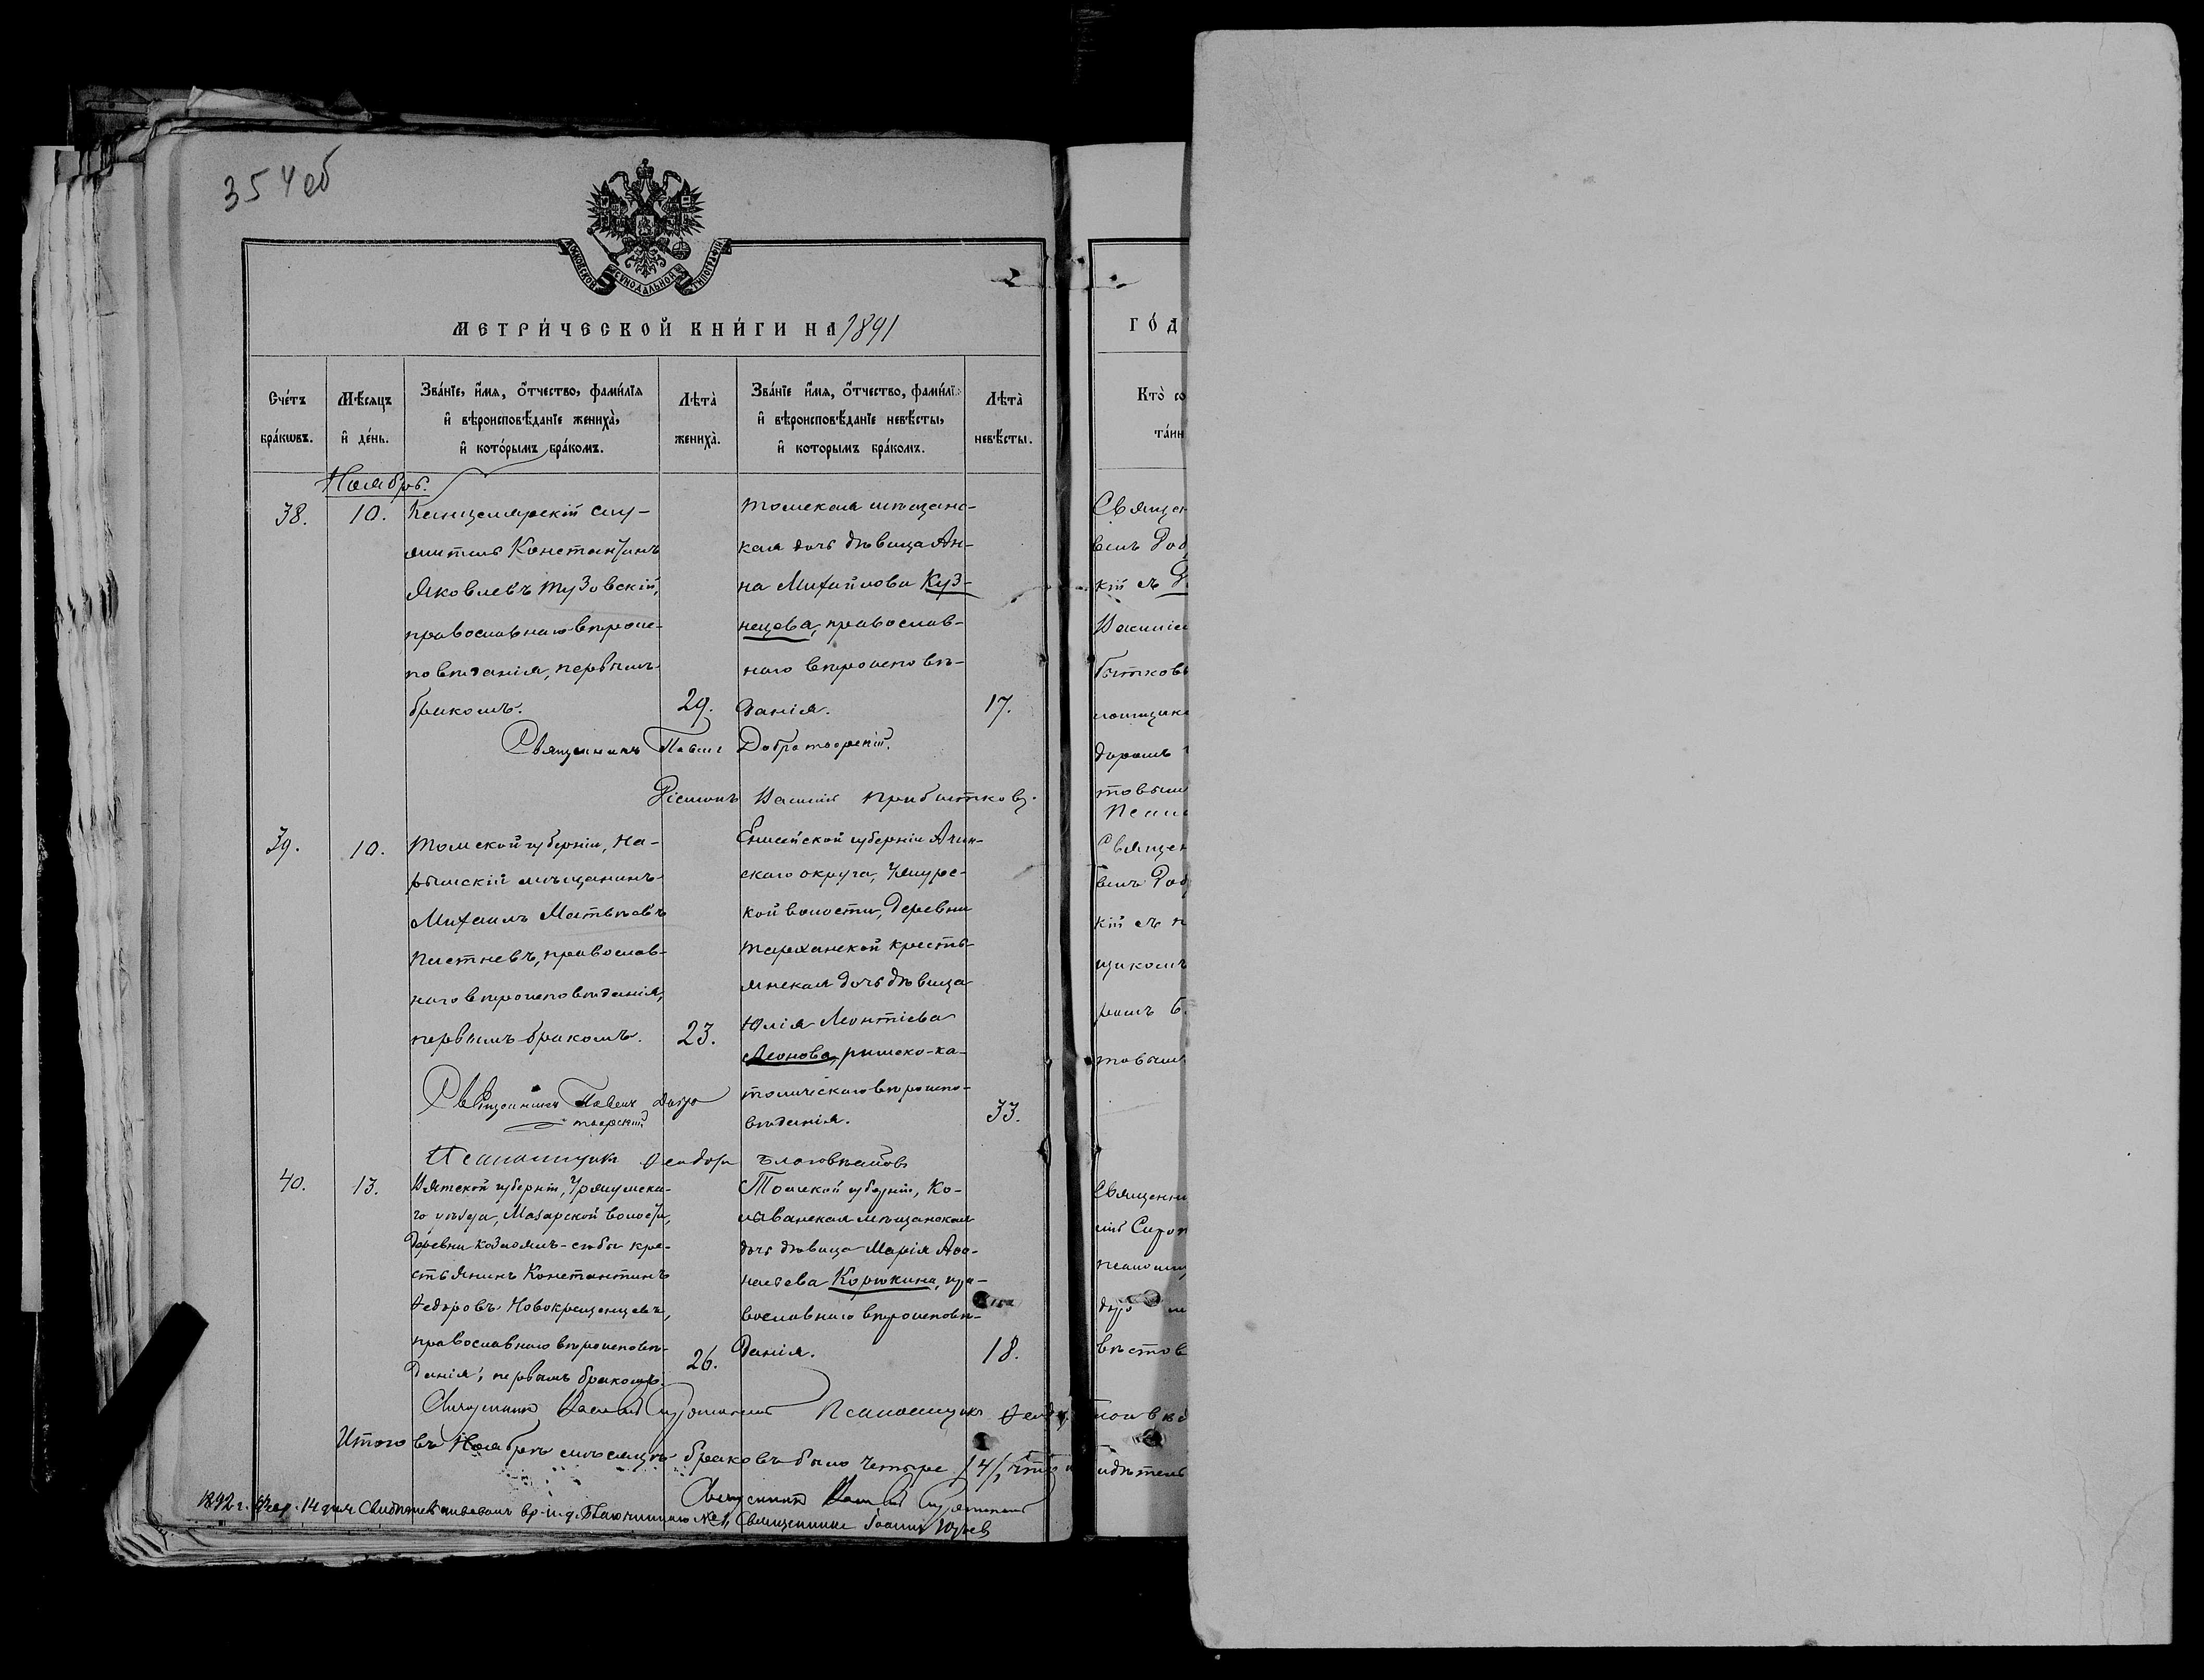 354об
МОСКОВСКОЙ СѴНОДАЛЬНОЙ ТИПОГРАФІИ
МЕТРИЧЕСКОЙ КНИГИ НА 1891
ГОД
Счетъ браковъ.
Мѣсяцъ и день.
Званіе, имя, отчество, фамилія
и вѣроисповѣданіе жениха,
и которымъ бракомъ.
Лѣта жениха.
Званіе имя, отчество, фамилі
и вѣроисповѣданіе невѣсты,
и которымъ бракомъ.
Лѣта невѣсты.
Кто со
таин
Ноябрь.
38.
10.
Канцелярскій слу-
житель Константинъ
Яковлевъ Тузовскій,
православнаго вѣроис-
повѣданія, первымъ
бракомъ.
29.
Томская мѣщанс-
кая дочь дѣвица Ан-
на Михайлова Куз-
нецова, православ-
наго вѣроисповѣ-
данія.
17.
Священникъ Павелъ Добротворскій.
Діаконъ Василій Прибытковъ.
39.
10.
Томской губерніи, На-
рымскій мѣщанинъ
Михаилъ Матвѣевъ
православ-
наго вѣроисповѣданія,
первымъ бракомъ.
23.
Енисейской губерніи Ачин-
скаго округа,
кой волости, деревни
Тарханской кресть-
янская дочь дѣвица
Юлія Леонтіева
Леонова, римско-ка-
толическаго вѣроиспо-
вѣданія.
33.
Священникъ Павелъ Добро
творскій
Псаломщикъ Феодоръ
40.
13.
Вятской губерніи, Уржумска-
го уѣзда, Мазарской волости,
деревни кре-
стьянинъ Константинъ
Федоровъ Новокрещенцевъ,
православнаго вѣроисповѣ-
данія, первымъ бракомъ.
26.
Томской губерніи, Ко-
лыванская мѣщанская
дочь дѣвица Марія Афа-
насьева Корюкина, пра-
вославнаго вѣроисповѣ-
данія.
18.
Священникъ Василій Сиротинскій Псаломщикъ
Итого въ Ноябрѣ мѣсяцѣ браковъ было четыре /4/, что
Священникъ Василій Сиротинскій
1892 г. Фев. 14 дня Свидѣтельствовалъ Священникъ Іоаннъ Юрьевъ
Священ
кій съ
Василіе
товым
Священ
кій съ
щикомъ
товымъ
Священни